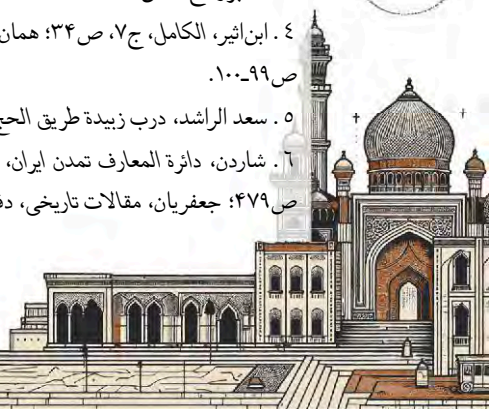 ٤ . ابن‌اثیر، الکامل، ج۷، ص۳۴؛ همان
ص۹۹ـ۱۰۰.
٥ . سعد الراشد، درب زبیدة طریق الحج
٦ . شاردن، دائرة المعارف تمدن ایران،
ص۴۷۹؛ جعفریان، مقالات تاریخی،